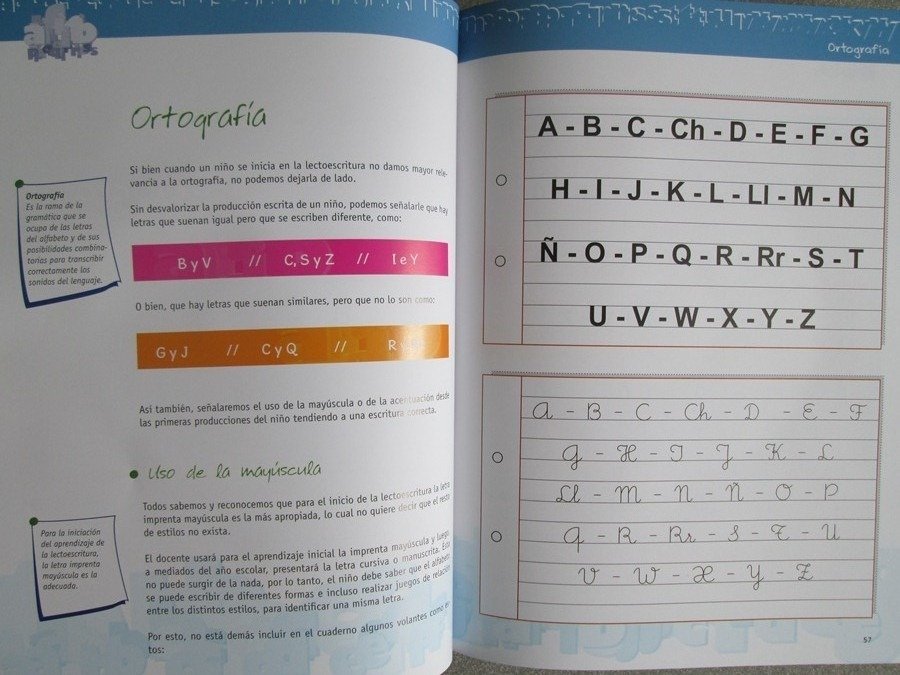 Ortografía
Si bien cuando un niño se inicia en la lectoescritura no damos mayor rele-
vancia a la ortografía, no podemos dejarla de lado.
Sin desvalorizar la producción escrita de un niño, podemos señalarle que hay
letras que suenan igual pero que se escriben diferente, como:
B y V // C, S y Z // I e Y
O bien, que hay letras que suenan similares, pero que no lo son como:
G y J // C y Q // R
Así también, señalaremos el uso de la mayúscula o de la acentuación desde
las primeras producciones del niño tendiendo a una escritura correcta.
Uso de la mayúscula
Todos sabemos y reconocemos que para el inicio de la lectoescritura la letra
imprenta mayúscula es la más apropiada, lo cual no quiere decir que el resto
de estilos no exista.
El docente usará para el aprendizaje inicial la imprenta mayúscula y luego,
a mediados del año escolar, presentará la letra cursiva o manuscrita. Esta
no puede surgir de la nada, por lo tanto, el niño debe saber que el alfabeto
se puede escribir de diferentes formas e incluso realizar juegos de relación
entre los distintos estilos, para identificar una misma letra.
Por esto, no está demás incluir en el cuaderno algunos volantes como
tos:
Ortografía
Es la rama de la
gramática que se
ocupa de las letras
del alfabeto y de sus
posibilidades combina-
torias para transcribir
correctamente los
sonidos del lenguaje.
Para la iniciación
del aprendizaje de
la lectoescritura,
la letra imprenta
mayúscula es la
adecuada.
Ortografía
A - B - C - Ch - D - E - F - G
H - I - J - K - L - Ll - M - N
Ñ - O - P - Q - R - Rr - S - T
U - V - W - X - Y - Z
A - B - C - Ch - D - E - F
G - H - I - J - K - L
Ll - M - N - Ñ - O - P
Q - R - Rr - S - T - U
V - W - X - Y - Z
57